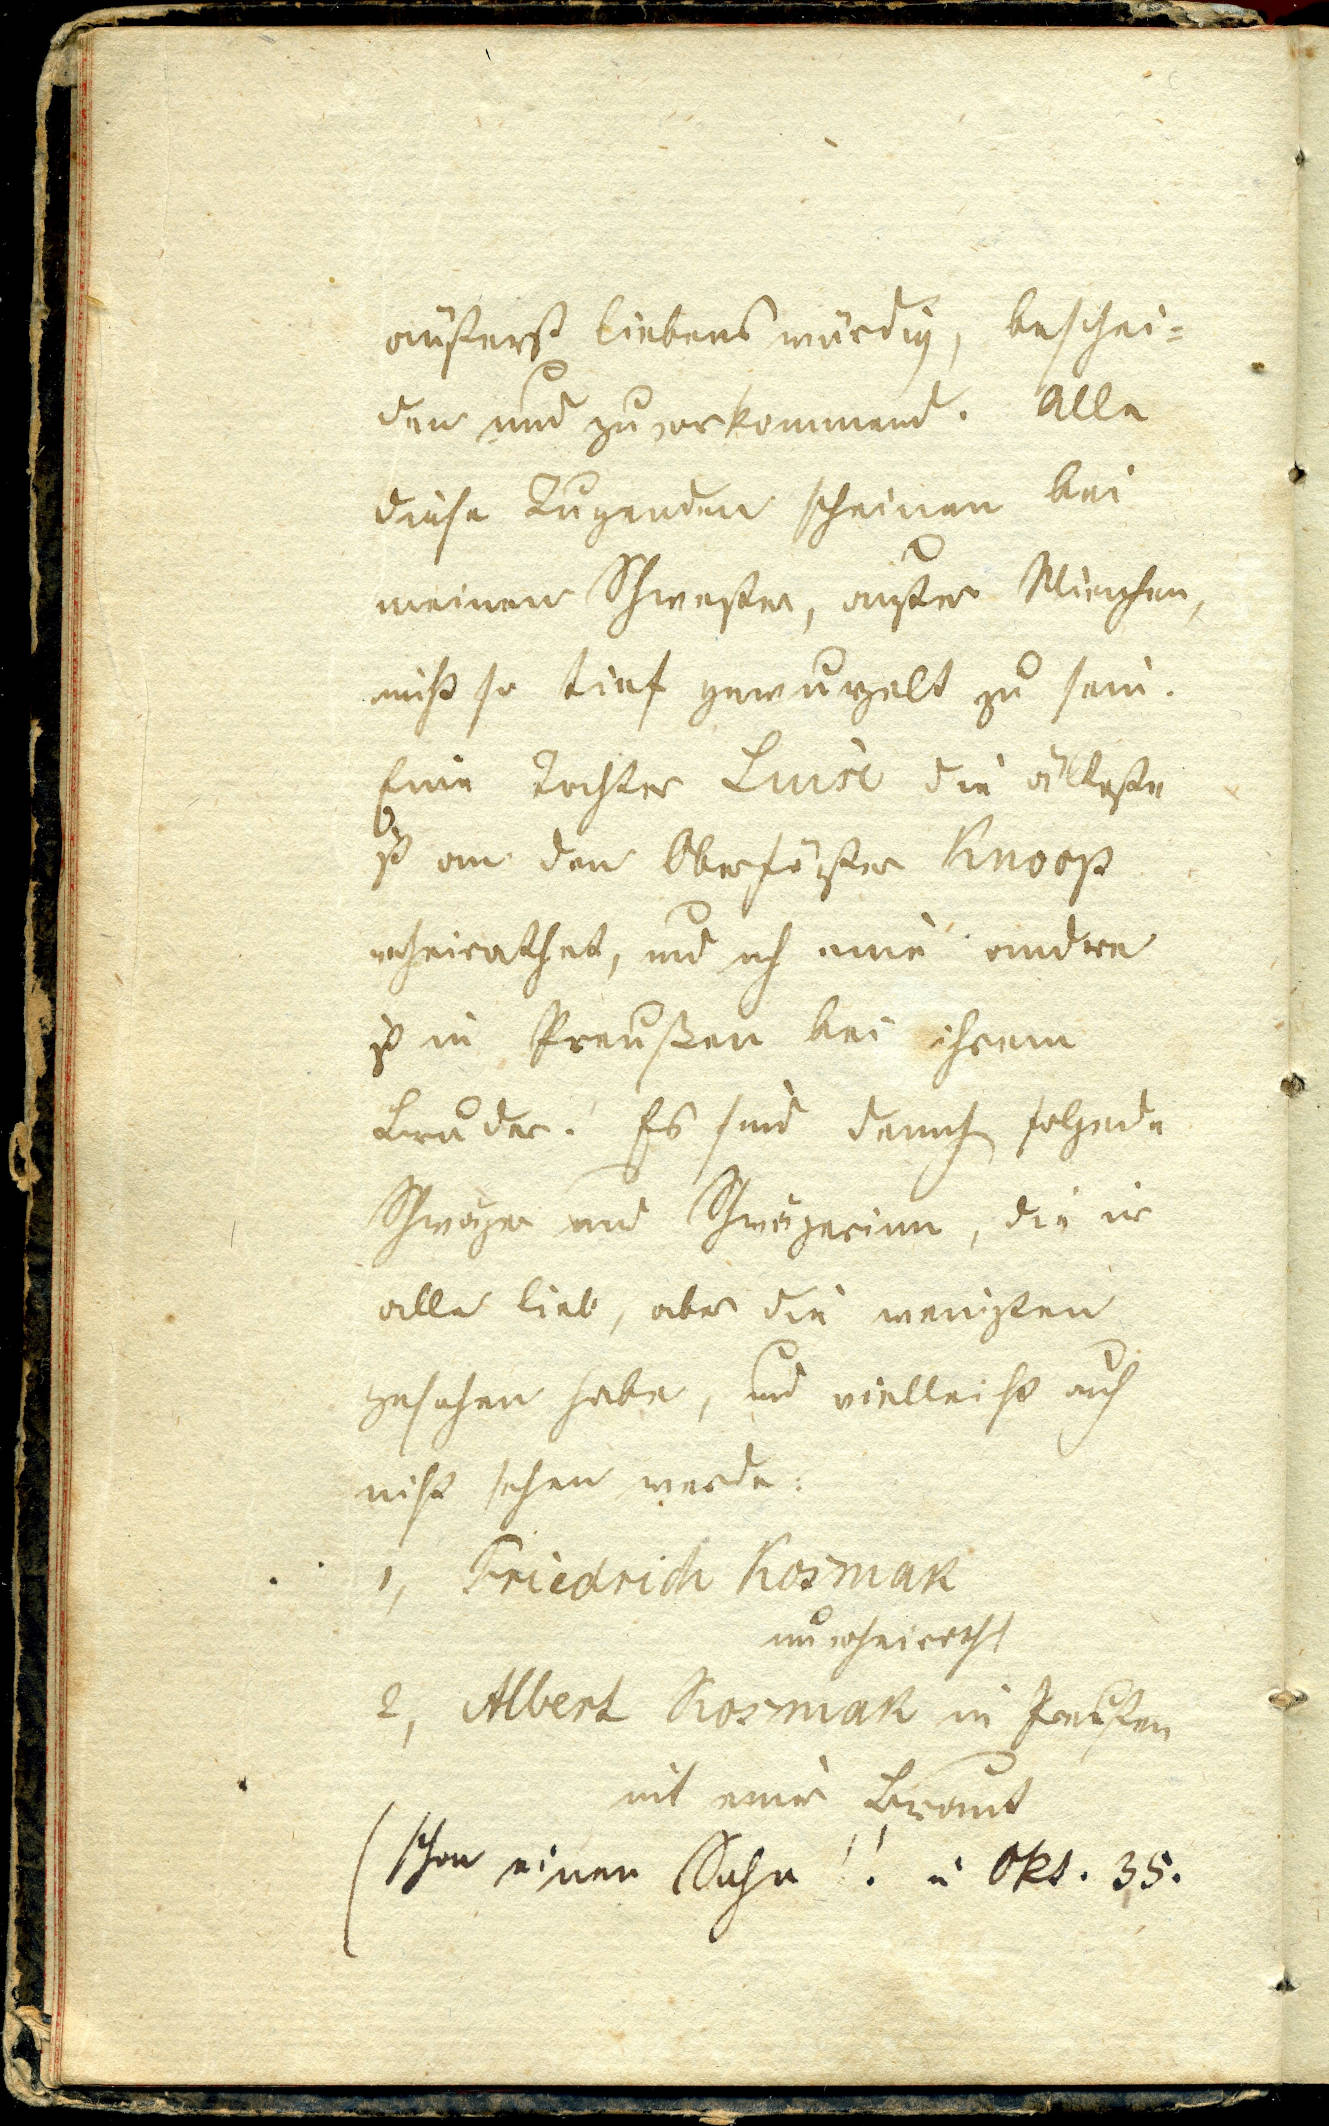 äußerst liebenswürdig, beschei=
den und zuvorkommend. Alle
diese Tugenden scheinen bei
meinen Schwester, außer Mienchen,
nicht so tief gewurzelt zu sein.
Eine Tochter Luise die älteste
ist an den Oberförster Knoop
verheirathet, und noch eine andere
ist in Preußen bei ihrem
Bruder. Es sind demnach folgende
Schwäger und Schwägerinn, die ich
alle lieb, aber die wenigsten
gesehen habe, und vielleicht auch
nicht sehen werde:
1, Friedrich Kosmak
unverheirathet
2, Albert Kosmak in Preußen
mit einer Braut
(schon einen Sohn!! in Okt. 35.